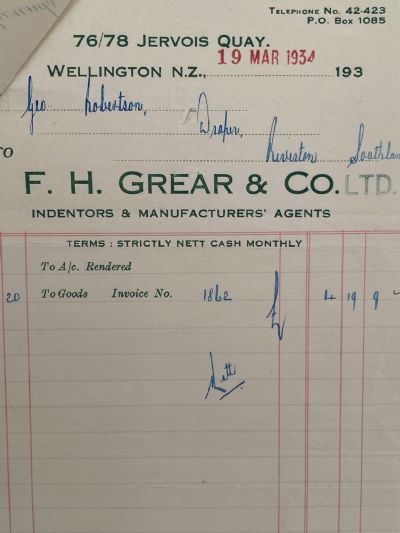 TELEPHONE NO. 42-423
P.O. BOX 1085
76/78 JERVOIS QUAY.
WELLINGTON N.Z., 19 MAR 1934 193
Geo Robertson,
Draper,
TO Riverton Southland
F. H. GREAR & CO. LTD.
INDENTORS & MANUFACTURERS' AGENTS
TERMS : STRICTLY NETT CASH MONTHLY
To A/c. Rendered
20 To Goods Invoice No. 1862 £ 4 19 9
Nett